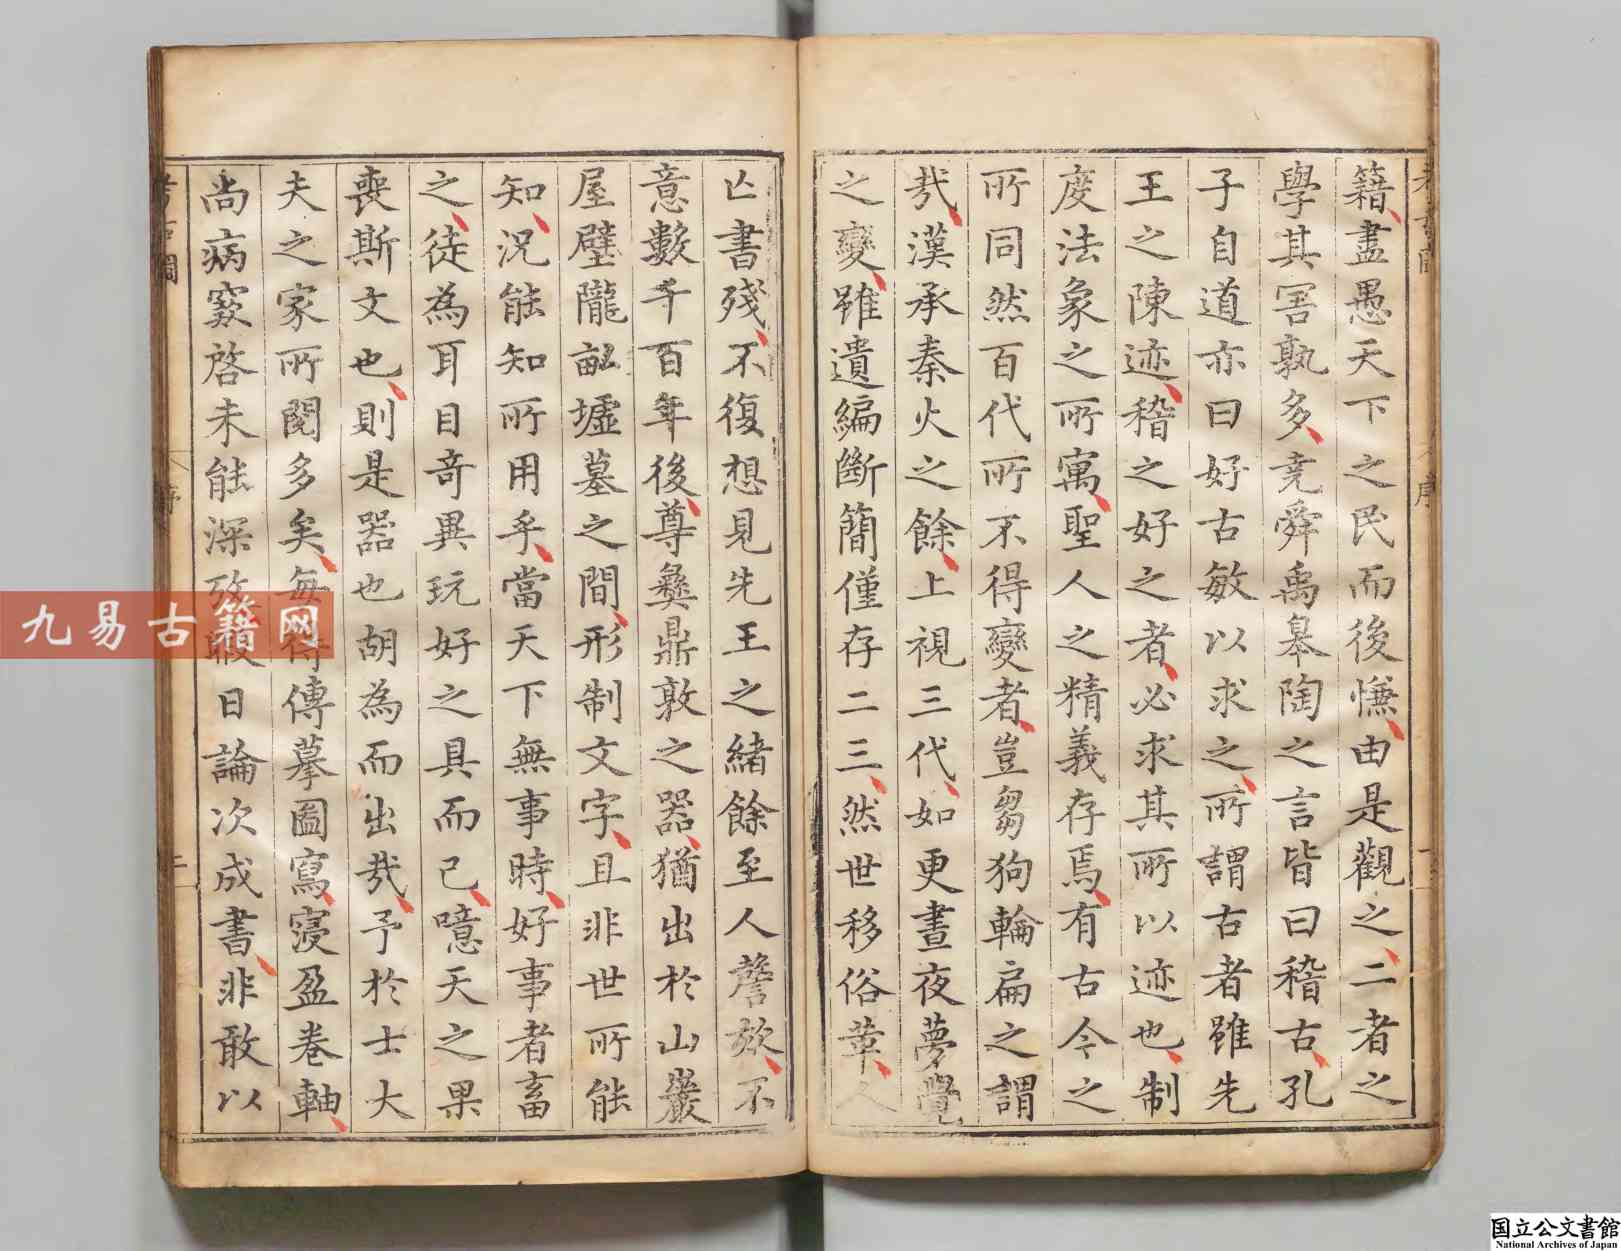 籍盡愚天下之民而後慊由是觀之二者之
學其害孰多堯舜禹皋陶之言皆曰稽古孔
子自道亦曰好古敏以求之所謂古者雖先
王之陳迹稽之好之者必求其所以迹也制
度法象之所寓聖人之精義存焉有古今之
所同然百代所不得變者豈芻狗輪扁之謂
哉漢承秦火之餘上視三代如更晝夜夢覺
之變雖遺編斷簡僅存二三然世移俗革人
亾書殘不復想見先王之緒餘至人謦欬不
意數千百年後尊彝鼎敦之器猶出於山巖
屋壁隴畝墟墓之間形制文字且非世所能
知況能知所用乎當天下無事時好事者畜
之徒為耳目奇異玩好之具而已噫天之果
喪斯文也則是器也胡為而出哉予於士大
夫之家所閱多矣每得傳摹圖寫寖盈卷軸
尚病窾啓未能深攷暇日論次成書非敢以
考古圖
序
二
九易古籍网
国立公文書館
National Archives of Japan